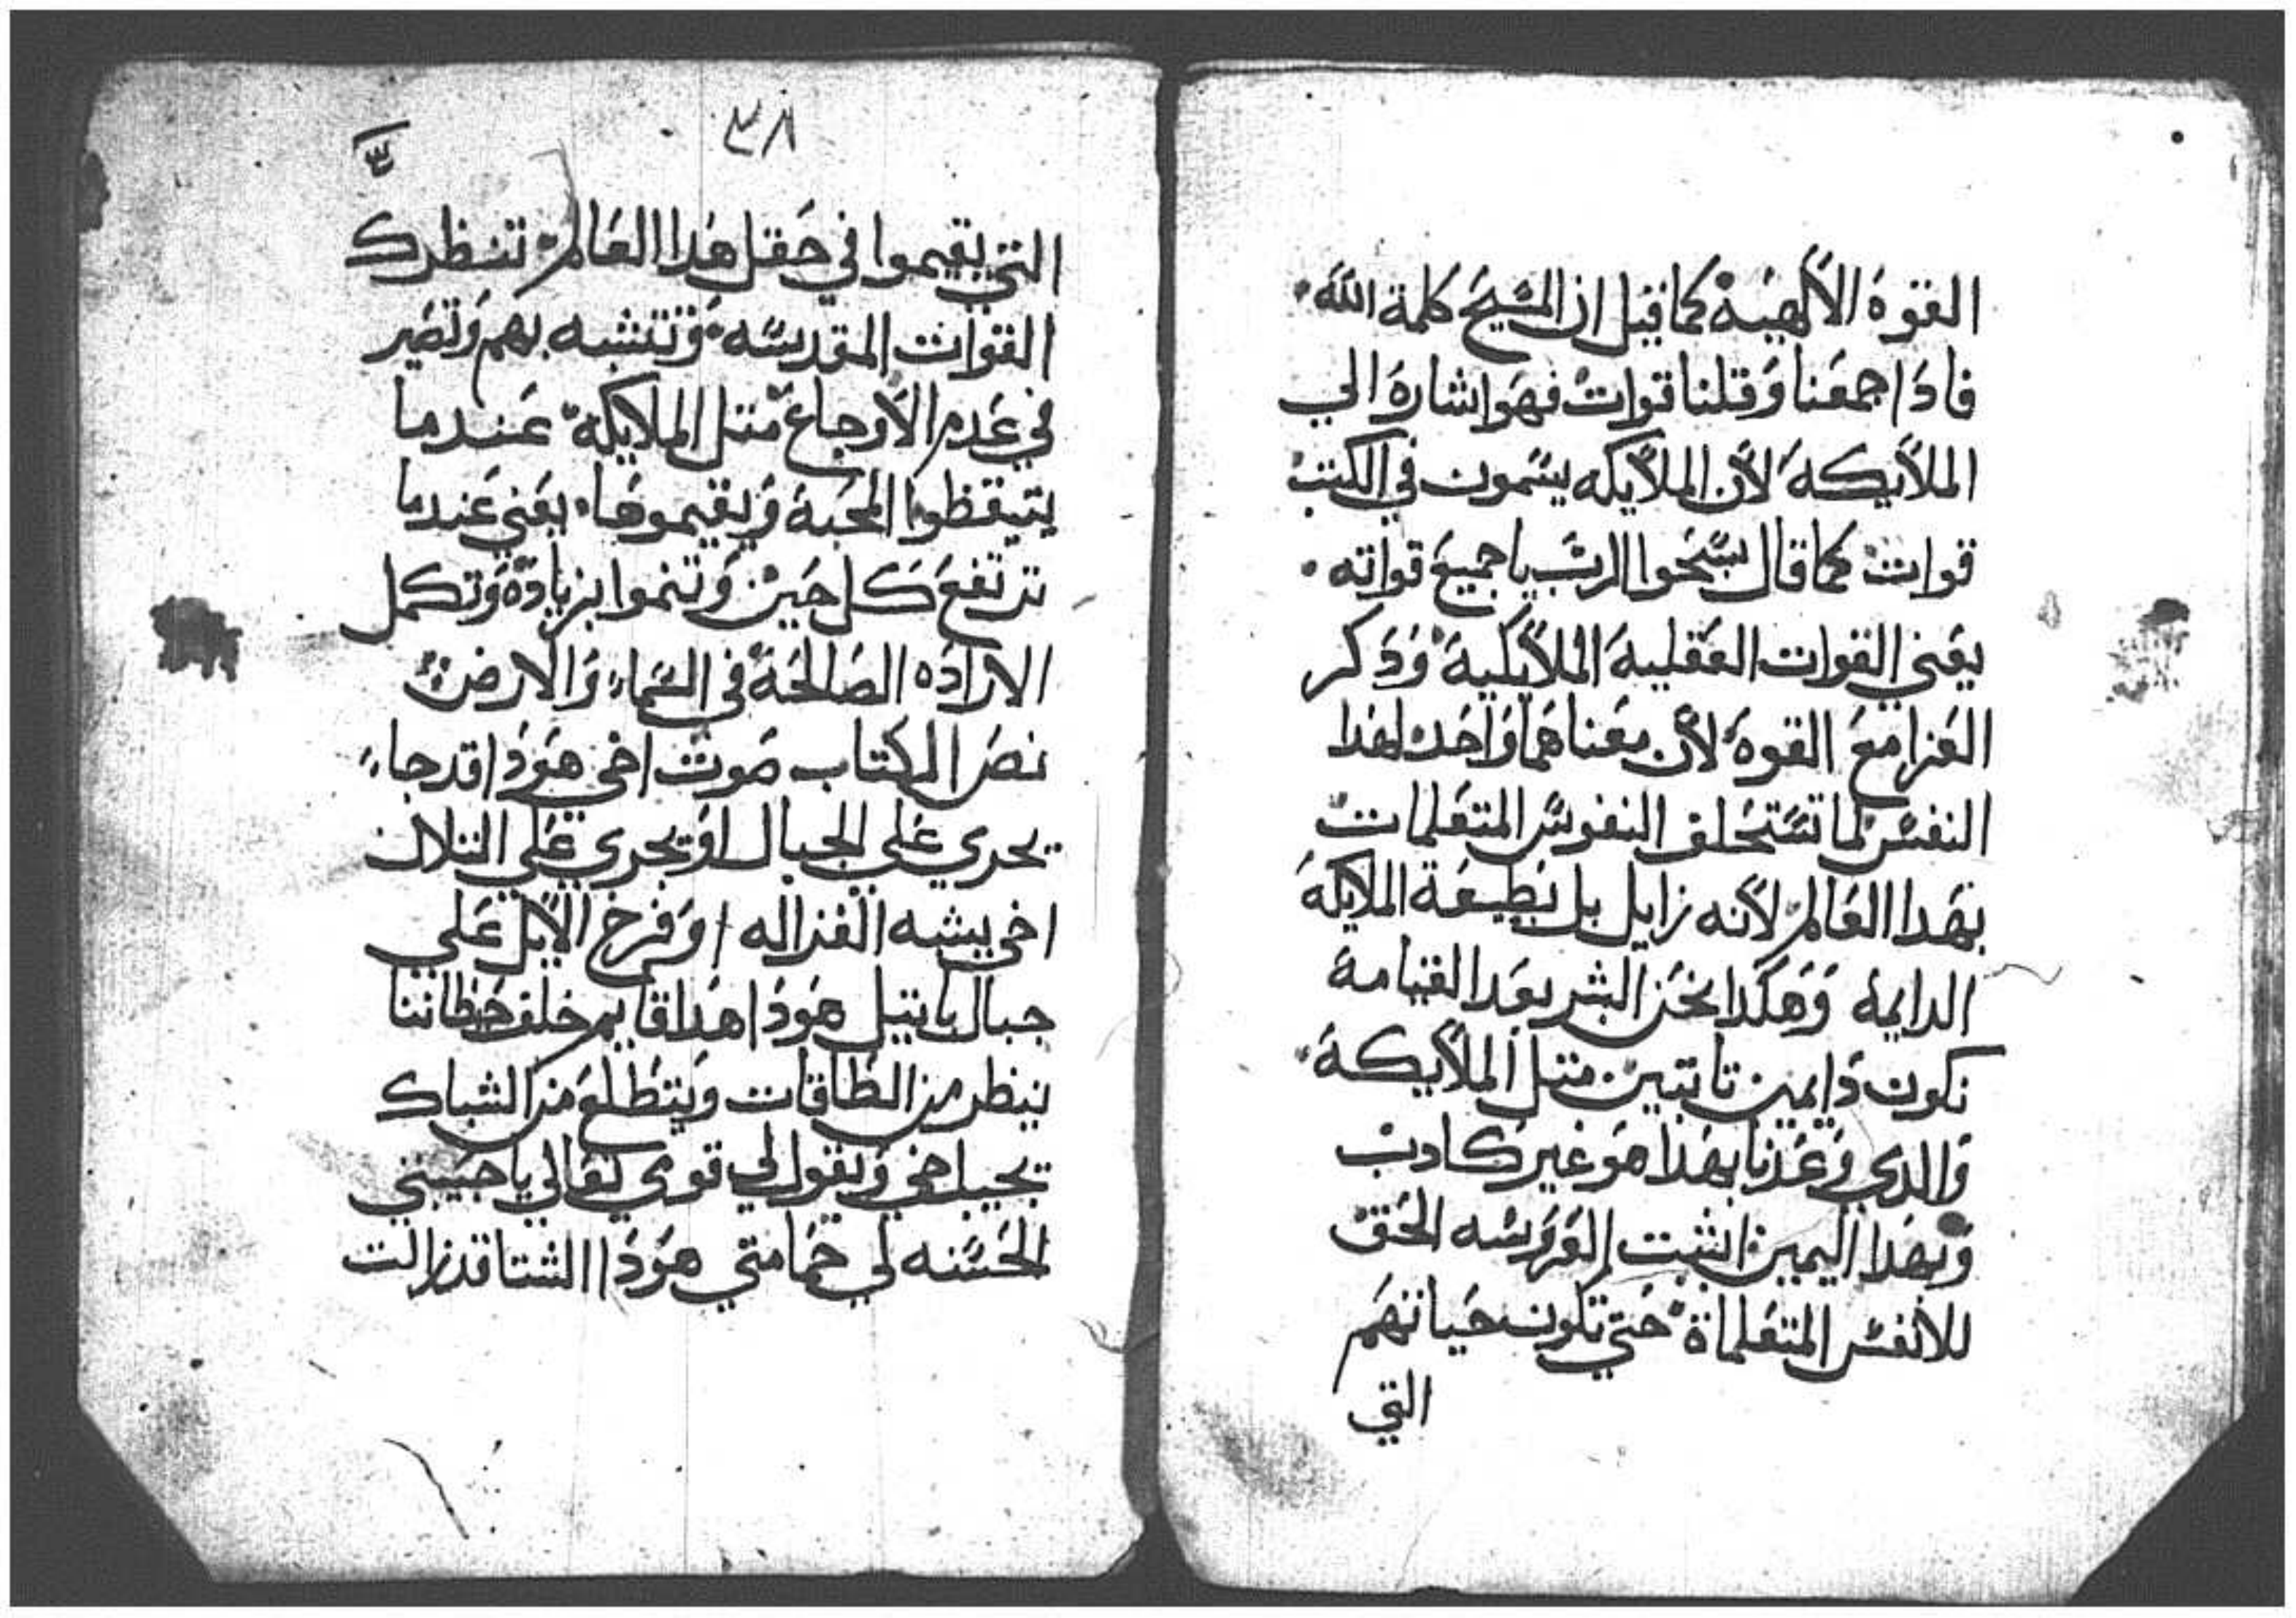 القوة الالهية كما قيل ان المسيح كلمة الله
فاذا جمعنا وقلنا قوات فهو اشارة الي
الملايكة لان الملايكه يسمون في الكتب
قوات كما قال سبحوا الرب يا جميع قواته
يعني القوات العقلية الملايكية وذكر
العزا مع القوة لان معناهما واحد لهدا
النفس لما تستحلف النفوس المتعلمات
بهدا العالم لانه زايل بل بطبيعة الملايكة
الدايمه وهكدا نحن البشر بعد القيامة
نكون دايمين تابتين متل الملايكة
والدي وعدنا بهدا هو غير كادب
وبهدا اليمين اتبتت العروسه الحق
للانفس المتعلماة حتي تكون حياتهم
التي
٣٨
التي يقيموا في حقل هدا العالم تنظر ك
القوات المقدسه وتتشبه بهم وتصير
في عدم الاوجاع متل الملايكة عندما
يتيقظوا المحبة ويقيموها يعني عندما
ترتفع كل حين وتنموا بزيادة وتكمل
الاراده الصالحة في السماء والارض
نص الكتاب صوت اخي هوذا قد جاء
يجري علي الجبال او يجري علي التلال
اخي يشبه الغزاله او فرخ الايل علي
جبال باتيل هوذا هدا قايم خلف حيطاننا
ينظر من الطاقات ويتطلع من الشباك
تجيب اخي ويقول لي قومي تعالي يا حبيبتي
الحسنه لي حمامتي هوذا الشتا قد زالت